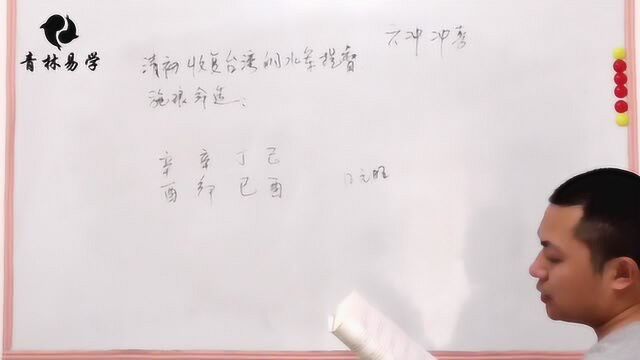 青林易学
六冲 冲
清初收复台湾的水军提督
施琅命造:
辛 辛 丁 己
酉 卯 巳 酉 日元旺